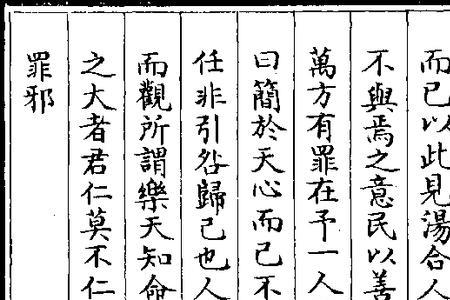 而已以此見湯合人
不與焉之意民以善
萬方有罪在予一人
曰簡於天心而已不
任非引咎歸己也人
而觀所謂樂天知命
之大者君仁莫不仁
罪邪